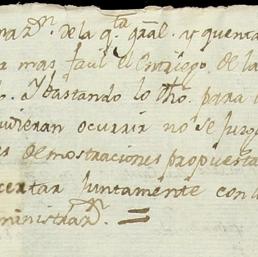 raz.ⁿ de la q.ᵗᵃ gral. y quenta
mas facil el entriego de la
Y bastando lo dho. para
udieran ocurrir no se juzg
es demostraciones propuesta
certar juntamente con l
ministraz.ⁿ =